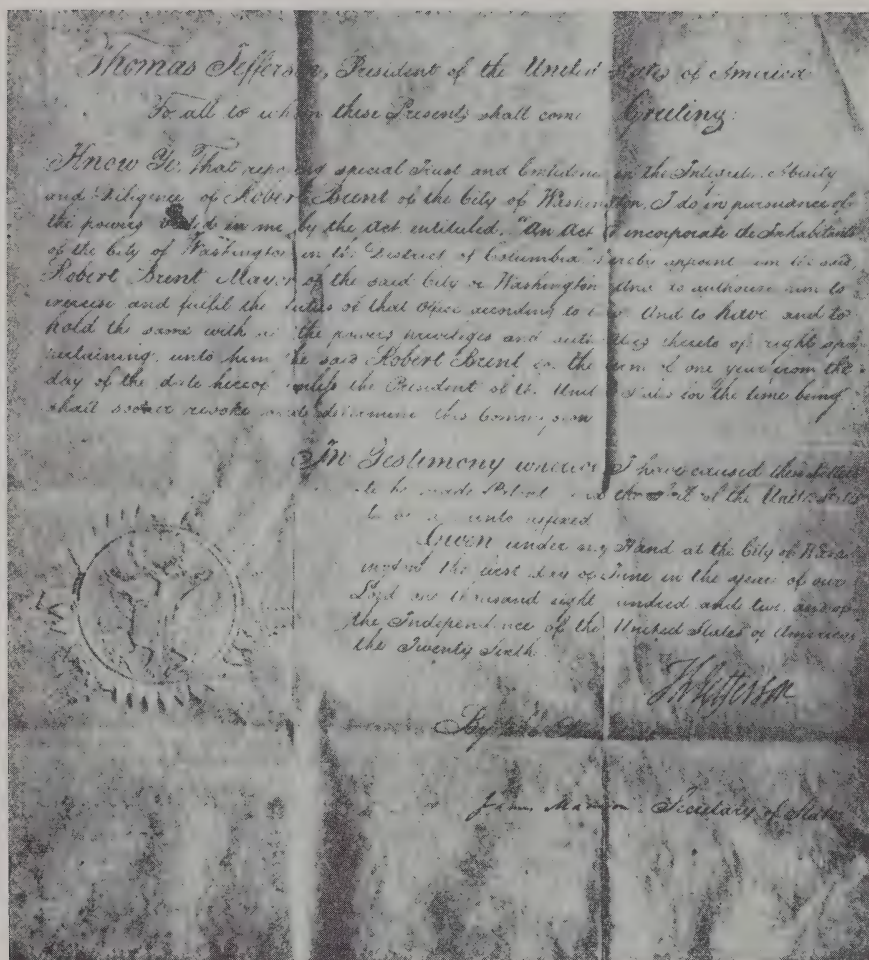 Thomas Jefferson, President of the United States of America
To all to whom these Presents shall come Greeting:
Know Ye, That reposing special Trust and Confidence in the Integrity Ability
and Diligence of Robert Brent of the City of Washington, I do in pursuance of
the powers vested in me by the Act entituled, "An Act to incorporate the Inhabitants
of the City of Washington in the District of Columbia" hereby appoint him the said
Robert Brent Mayor of the said City of Washington and to authorise him to
execise and fulfil the duties of that Office according to law And to have and to
hold the same with all the powers privileges and authorities thereto of right
unto him the said Robert Brent for the term of one year from the
day of the date hereof unless the President of the United States for the time being
shall sooner revoke and determine this Commission
In Testimony whereof I have caused these Letters
to be made Patent and the Seal of the United States
to be unto affixed
Given under my Hand at the City of
the first day of June in the year of our
Lord one thousand eight hundred and two, and of
the Independence of the United States of America,
the Twenty Sixth.
Th Jefferson
By the
James Madison Secretary of State